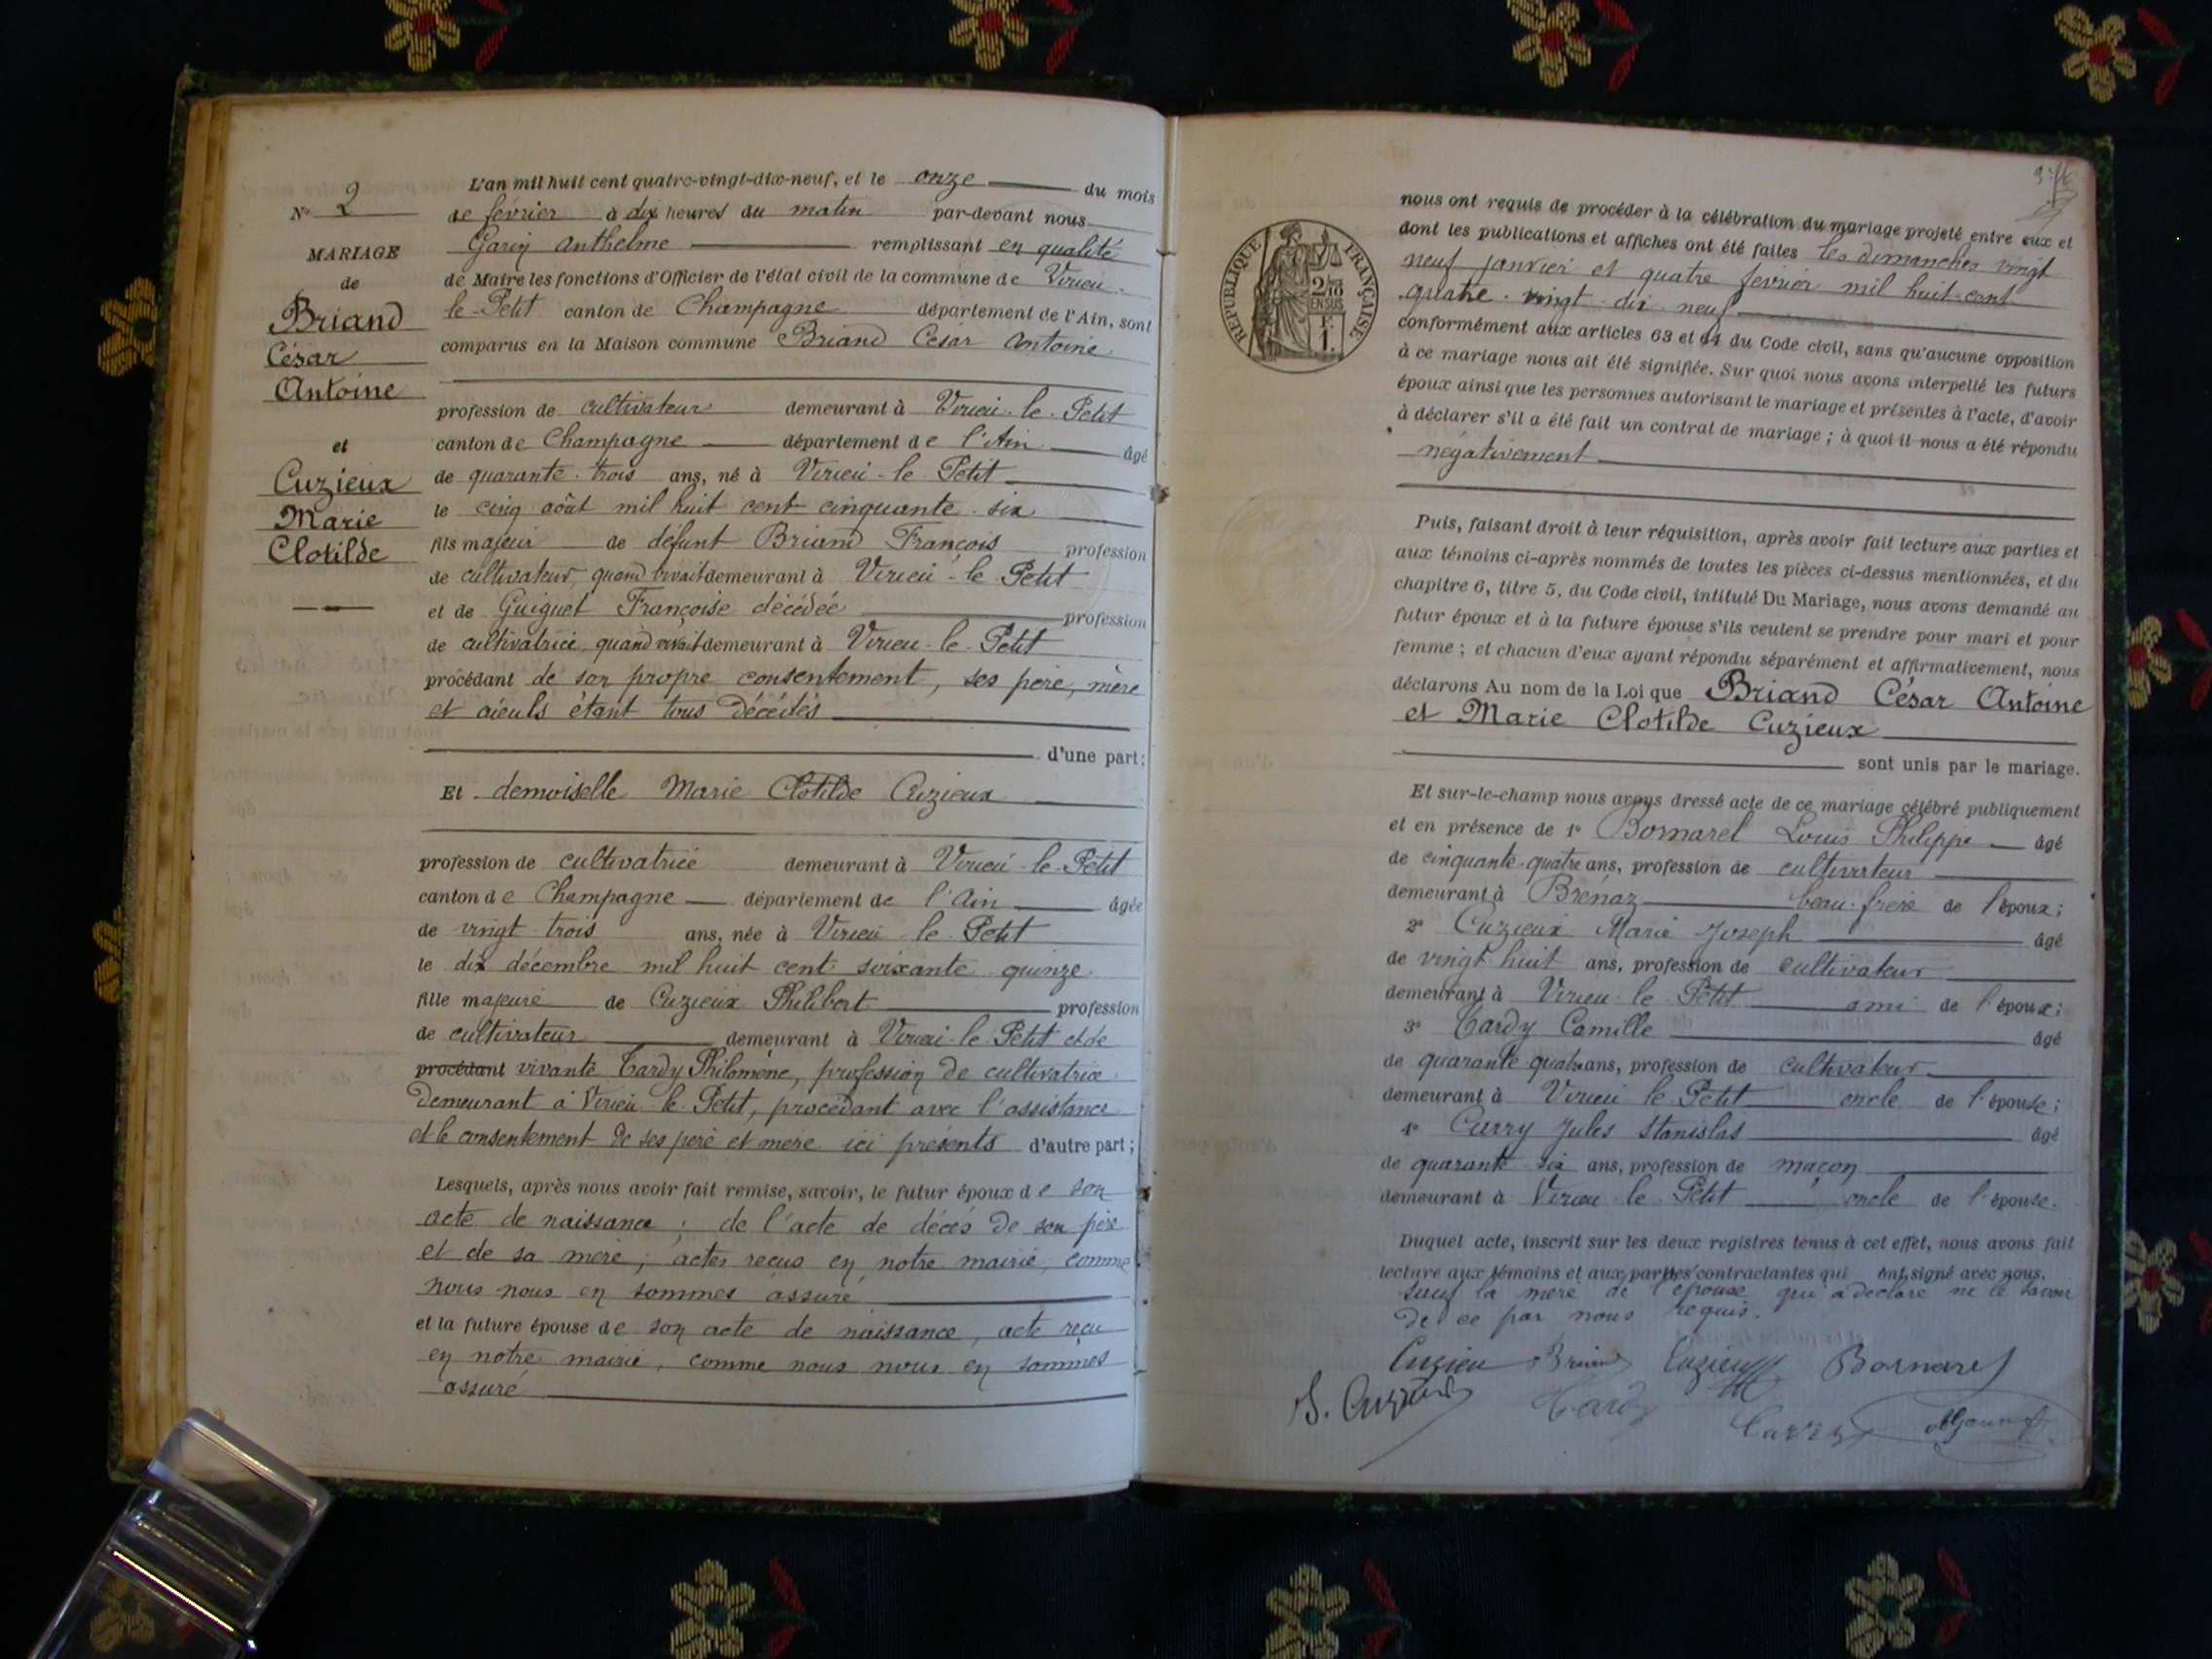 N° 2
MARIAGE
de
Briand
César
Antoine
et
Cuzieux
Marie
Clotilde
L'an mil huit cent quatre-vingt-dix-neuf, et le onze du mois
de février à dix heures du matin par-devant nous
Garin Anthelme remplissant en qualité
de Maire les fonctions d'Officier de l'état civil de la commune de Virieu-
le-Petit canton de Champagne département de l'Ain, sont
comparus en la Maison commune Briand César Antoine
profession de cultivateur demeurant à Virieu-le-Petit
canton de Champagne département de l'Ain âgé
de quarante-trois ans, né à Virieu-le-Petit
le cinq août mil huit cent cinquante-six
fils majeur de défunt Briand François profession
de cultivateur, quand vivait demeurant à Virieu-le-Petit
et de Guiguet Françoise décédée profession
de cultivatrice, quand vivait demeurant à Virieu-le-Petit
procédant de son propre consentement, ses père, mère
et aïeuls étant tous décédés
d'une part;
Et demoiselle Marie Clotilde Cuzieux
profession de cultivatrice demeurant à Virieu-le-Petit
canton de Champagne département de l'Ain âgée
de vingt-trois ans, née à Virieu-le-Petit
le dix décembre mil huit cent soixante-quinze
fille majeure de Cuzieux Philibert profession
de cultivateur demeurant à Virieu-le-Petit et de
procédant vivante Tardy Philomène, profession de cultivatrice
demeurant à Virieu-le-Petit, procédant avec l'assistance
et le consentement de ses père et mère ici présents d'autre part;
Lesquels, après nous avoir fait remise, savoir, le futur époux de son
acte de naissance; de l'acte de décès de son père
et de sa mère; actes reçus en notre mairie, comme
nous nous en sommes assuré
et la future épouse de son acte de naissance, acte reçu
en notre mairie, comme nous nous en sommes
assuré
RÉPUBLIQUE FRANÇAISE
2/10
EN SUS
F.
1.
nous ont requis de procéder à la célébration du mariage projeté entre eux et
dont les publications et affiches ont été faites les dimanches vingt
neuf janvier et quatre février mil huit cent
quatre-vingt-dix-neuf
conformément aux articles 63 et 64 du Code civil, sans qu'aucune opposition
à ce mariage nous ait été signifiée. Sur quoi nous avons interpellé les futurs
époux ainsi que les personnes autorisant le mariage et présentes à l'acte, d'avoir
à déclarer s'il a été fait un contrat de mariage; à quoi il nous a été répondu
négativement
Puis, faisant droit à leur réquisition, après avoir fait lecture aux parties et
aux témoins ci-après nommés de toutes les pièces ci-dessus mentionnées, et du
chapitre 6, titre 5, du Code civil, intitulé Du Mariage, nous avons demandé au
futur époux et à la future épouse s'ils veulent se prendre pour mari et pour
femme; et chacun d'eux ayant répondu séparément et affirmativement, nous
déclarons Au nom de la Loi que Briand César Antoine
et Marie Clotilde Cuzieux
sont unis par le mariage.
Et sur-le-champ nous avons dressé acte de ce mariage célébré publiquement
et en présence de 1° Bornarel Louis Philippe âgé
de cinquante-quatre ans, profession de cultivateur
demeurant à Brénaz beau-frère de l'époux;
2° Cuzieux Marie Joseph âgé
de vingt huit ans, profession de cultivateur
demeurant à Virieu-le-Petit ami de l'époux;
3° Tardy Camille âgé
de quarante quatre ans, profession de cultivateur
demeurant à Virieu le Petit oncle de l'épouse;
4° Curry Jules Stanislas âgé
de quarante-six ans, profession de maçon
demeurant à Virieu-le-Petit oncle de l'épouse.
Duquel acte, inscrit sur les deux registres tenus à cet effet, nous avons fait
lecture aux témoins et aux parties contractantes qui ont signé avec nous.
sauf la mère de l'épouse qui a déclaré ne le savoir
de ce par nous requis.
Cuzieu Briand Cuzieux Bornarel
Tardy